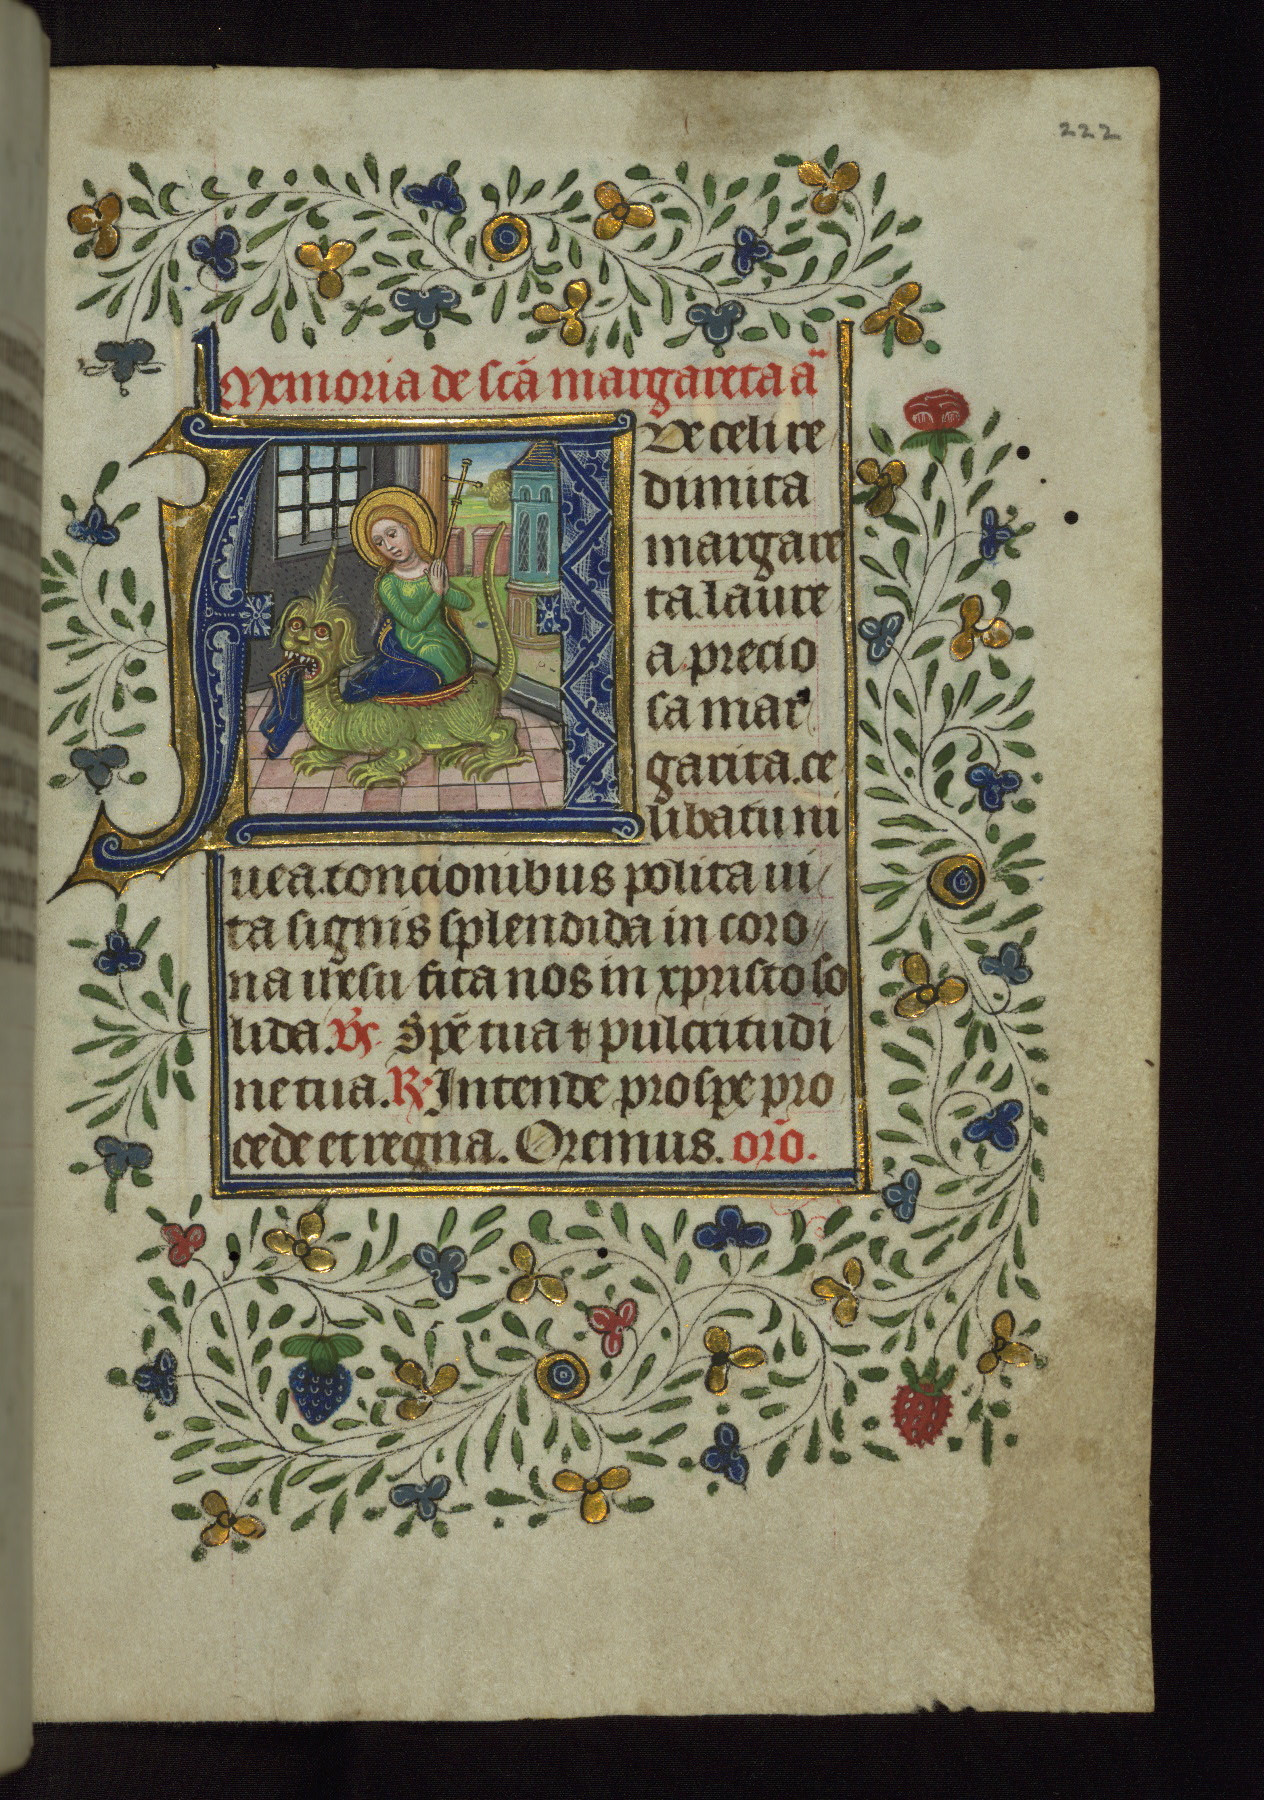 222
Memoria de scā margareta ā
Ave celi re
dimita
margare
ta. laure
a precio
sa mar
garita. ce
libatu ni
uea. concionibus polita ui
ta signis splendida in coro
na ihesu sita nos in xpristo so
lida. V̄s Spē tua et pulcritudi
ne tua. R̄ Intende prospe pro
cede et regna. Oremus. orō.